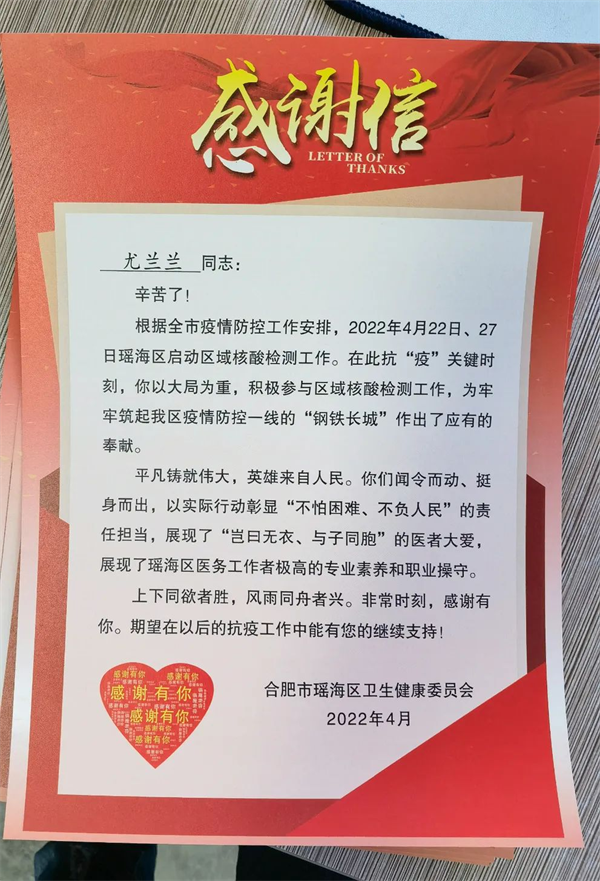 感谢信
LETTER OF
THANKS
尤兰兰 同志：
辛苦了！
根据全市疫情防控工作安排，2022年4月22日、27
日瑶海区启动区域核酸检测工作。在此抗“疫”关键时
刻，你以大局为重，积极参与区域核酸检测工作，为牢
牢筑起我区疫情防控一线的“钢铁长城”作出了应有的
奉献。
平凡铸就伟大，英雄来自人民。你们闻令而动、挺
身而出，以实际行动彰显“不怕困难、不负人民”的责
任担当，展现了“岂曰无衣、与子同胞”的医者大爱，
展现了瑶海区医务工作者极高的专业素养和职业操守。
上下同欲者胜，风雨同舟者兴。非常时刻，感谢有
你。期望在以后的抗疫工作中能有您的继续支持！
合肥市瑶海区卫生健康委员会
2022年4月
感谢有你
感谢有你
感谢有你
感谢有你
感谢有你